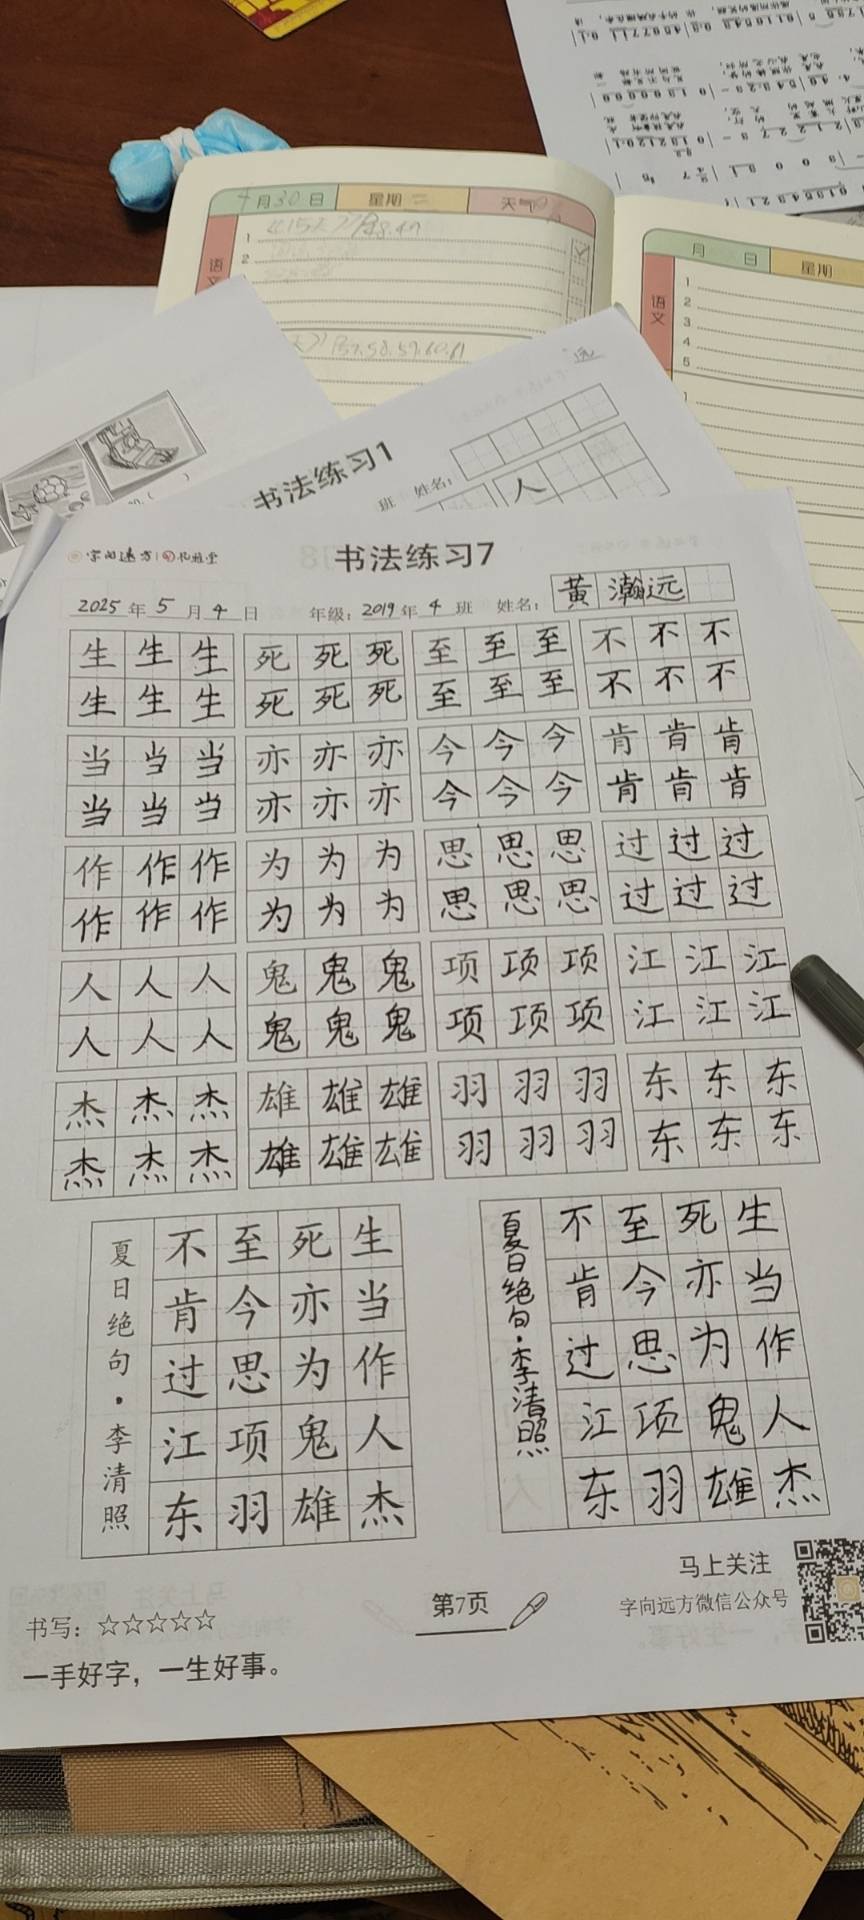 十月30日 星期二 天气
1
2
语文
57.58.59.60.61
月 日 星期
语文
1
2
3
4
5
书法练习1
班 姓名：
人
字向远方
书法练习7
2025年5月4日 年级：2019年4班 姓名：黄瀚远
生生生 死死死 至至至 不不不
生生生 死死死 至至至 不不不
当当当 亦亦亦 今今今 肯肯肯
当当当 亦亦亦 今今今 肯肯肯
作作作 为为为 思思思 过过过
作作作 为为为 思思思 过过过
人人人 鬼鬼鬼 项项项 江江江
人人人 鬼鬼鬼 项项项 江江江
杰杰杰 雄雄雄 羽羽羽 东东东
杰杰杰 雄雄雄 羽羽羽 东东东
生当作人杰
死亦为鬼雄
至今思项羽
不肯过江东
夏日绝句·李清照
生当作人杰
死亦为鬼雄
至今思项羽
不肯过江东
夏日绝句·李清照
书写：☆☆☆☆☆
一手好字，一生好事。
第7页
马上关注
字向远方微信公众号